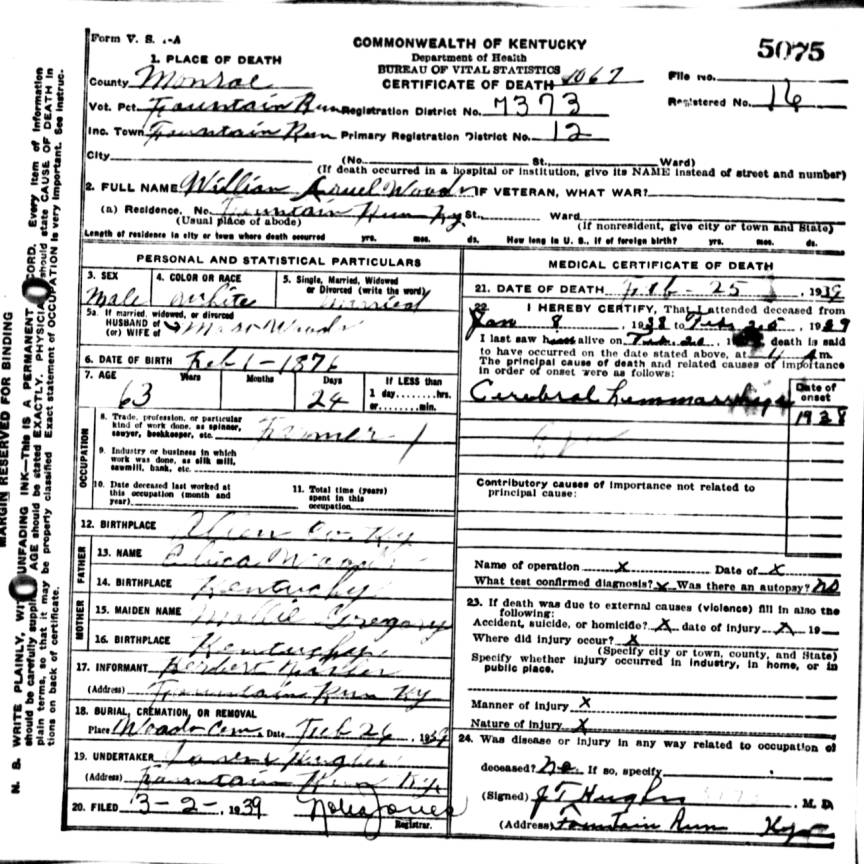 Form V. S. 1-A
COMMONWEALTH OF KENTUCKY
Department of Health
BUREAU OF VITAL STATISTICS
CERTIFICATE OF DEATH
5075
File No.
Registered No. 16
1. PLACE OF DEATH
County Monroe
Vot. Pct. Fountain Run Registration District No. 7373
Inc. Town Fountain Run Primary Registration District No. 12
City (No. St. Ward)
(If death occurred in a hospital or institution, give its NAME instead of street and number)
2. FULL NAME Willian Woods IF VETERAN, WHAT WAR?
(a) Residence. No. Fountain Run Ky St., Ward.
(Usual place of abode) (If nonresident, give city or town and State)
Length of residence in city or town where death occurred yrs. mos. ds. How long in U. S., if of foreign birth? yrs. mos. ds.
PERSONAL AND STATISTICAL PARTICULARS
3. SEX 4. COLOR OR RACE 5. Single, Married, Widowed
or Divorced (write the word)
Male White Married
5a If married, widowed, or divorced
HUSBAND of
(or) WIFE of Woods
6. DATE OF BIRTH Feb 1-1876
7. AGE Years Months Days If LESS than
63 24 1 day........hrs.
or........min.
OCCUPATION
8. Trade, profession, or particular
kind of work done, as spinner,
sawyer, bookkeeper, etc. Farmer
9. Industry or business in which
work was done, as silk mill,
sawmill, bank, etc.
10. Date deceased last worked at
this occupation (month and
year)
11. Total time (years)
spent in this
occupation
12. BIRTHPLACE Allen Co. Ky
FATHER
13. NAME Woods
14. BIRTHPLACE Kentucky
MOTHER
15. MAIDEN NAME Mollie Gregory
16. BIRTHPLACE Kentucky
17. INFORMANT Herbert
(Address) Fountain Run Ky
18. BURIAL, CREMATION, OR REMOVAL
Place Woods Cem. Date Feb 26, 1939
19. UNDERTAKER
(Address) Fountain Run Ky
20. FILED 3-2-, 1939 Jones
Registrar.
MEDICAL CERTIFICATE OF DEATH
21. DATE OF DEATH Feb-25, 1939
22. I HEREBY CERTIFY, That I attended deceased from
Jan 8, 1938 to Feb 25, 1939
I last saw alive on Feb death is said
to have occurred on the date stated above, at 4 A m.
The principal cause of death and related causes of importance
in order of onset were as follows:
Date of
onset
Cerebral hemmarrhage 1938
Contributory causes of importance not related to
principal cause:
Name of operation x Date of x
What test confirmed diagnosis? x Was there an autopsy? no
23. If death was due to external causes (violence) fill in also the
following:
Accident, suicide, or homicide? x date of injury x 19
Where did injury occur? x
(Specify city or town, county, and State)
Specify whether injury occurred in industry, in home, or in
public place.
Manner of injury x
Nature of injury x
24. Was disease or injury in any way related to occupation of
deceased? No. If so, specify
(Signed) J T Hughes, M. D.
(Address) Fountain Run Ky
MARGIN RESERVED FOR BINDING
N. B. WRITE PLAINLY, WITH UNFADING INK—This is A PERMANENT RECORD. Every item of information
should be carefully supplied. AGE should be stated EXACTLY. PHYSICIANS should state CAUSE OF DEATH in
plain terms, so that it may be properly classified. Exact statement of OCCUPATION is very important. See instruc-
tions on back of certificate.